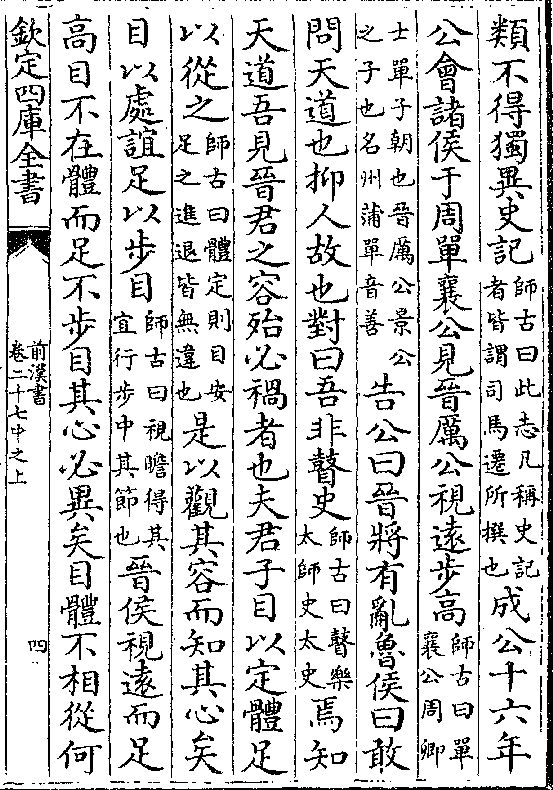 類不得獨異史記師古曰此志凡稱史記者皆謂司馬遷所撰也成公十六年
公會諸侯于周單襄公見晉厲公視遠步高師古曰單襄公周卿
士單子朝也晉厲公景公之子也名州蒲單音善告公曰晉將有亂魯侯曰敢
問天道也抑人故也對曰吾非瞽史師古曰瞽樂太師史太史焉知
天道吾見晉君之容殆必禍者也夫君子目以定體足
以從之師古曰體定則目安足之進退皆無違也是以觀其容而知其心矣
目以處誼足以步目師古曰視瞻得其宜行步中其節也晉侯視遠而足
高目不在體而足不步目其心必異矣目體不相從何
欽定四庫全書
前漢書
卷二十七中之上
四